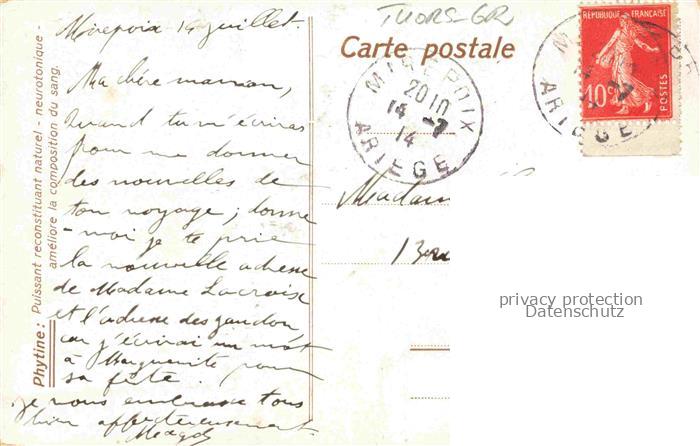 Phytine : Puissant reconstituant naturel - neurotonique -
améliore la composition du sang.
Mirepoix 14 juillet.
Ma chère maman,
Quand tu m'écriras
pour me donner
des nouvelles de
ton voyage ; donne
-moi je te prie
la nouvelle adresse
de Madame Lacroise
et l'adresse des
car j'écrirai un mot
à Marguerite pour
sa fête.
je vous embrasse tous
bien affectueusement
Carte postale
MIREPOIX
2010
14 -7
14
ARIEGE
REPUBLIQUE FRANÇAISE
10 c.
POSTES
ARIEGE
Madam
privacy protection
Datenschutz